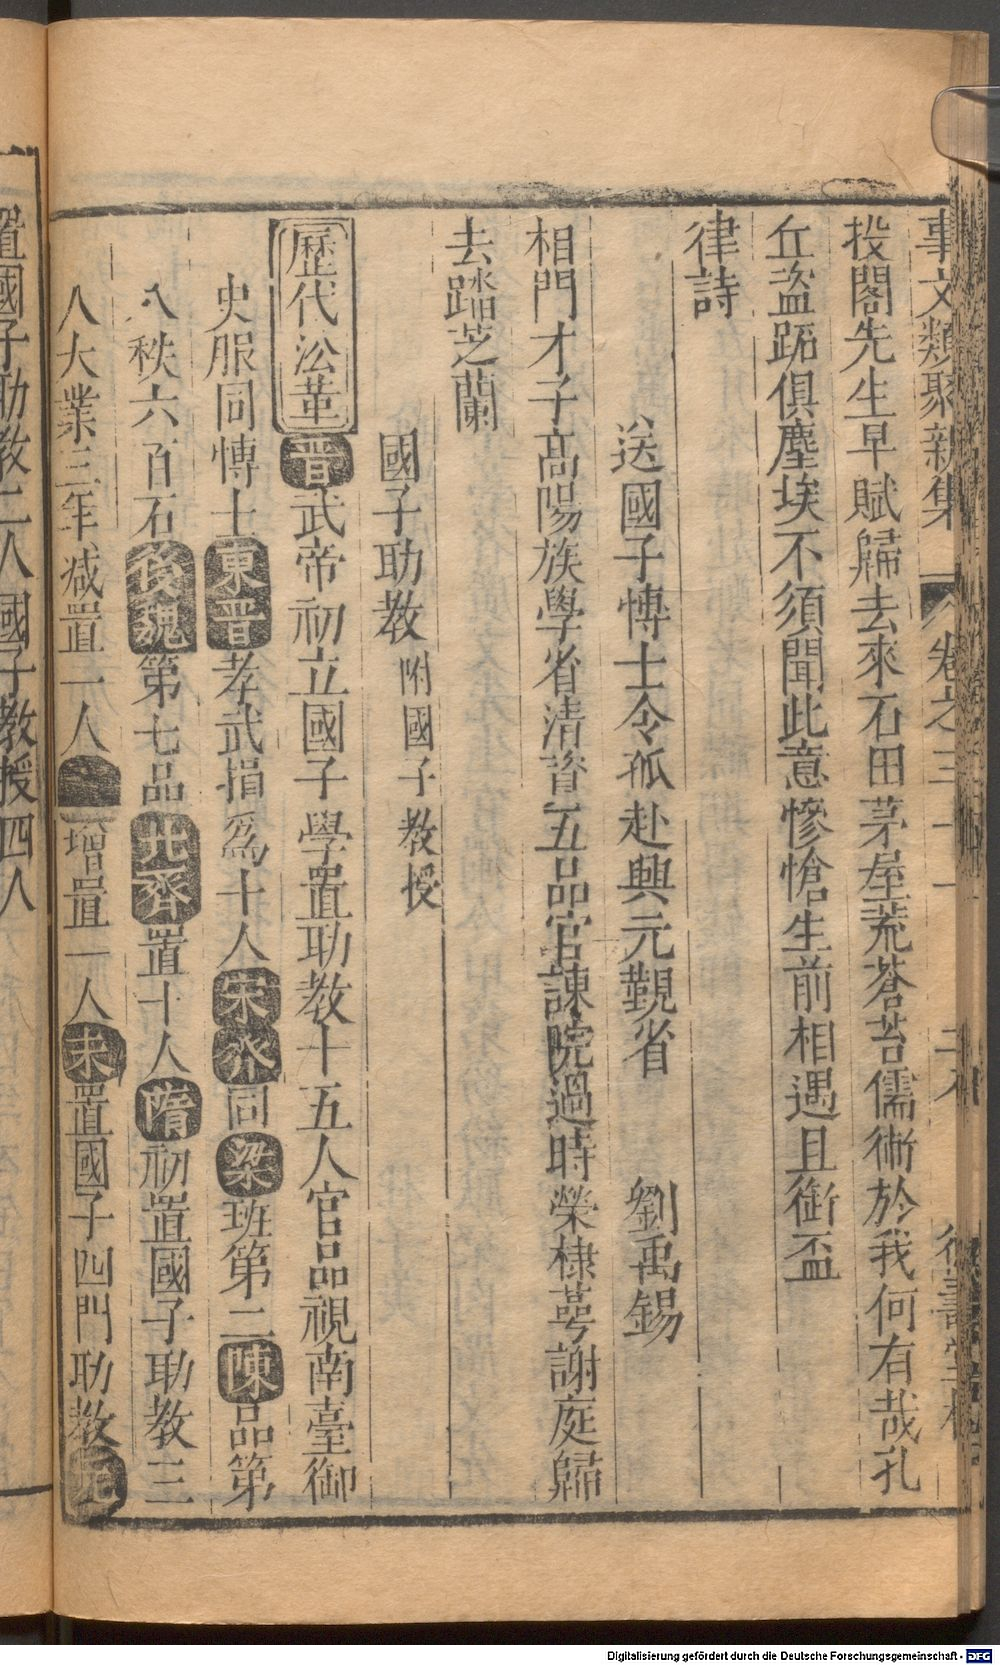 事文類聚新集 卷之三十一
投閣先生早賦歸去來石田茅屋荒蒼苔儒術於我何有哉孔
丘盗跖俱塵埃不須聞此意慘愴生前相遇且銜盃
律詩
送國子博士令狐赴興元觀省 劉禹錫
相門才子高陽族學省清資五品官諫院過時榮棣萼謝庭歸
去踏芝蘭
國子助教 附國子教授
歷代沿革 晋武帝初立國子學置助教十五人官品視南臺御
史服同博士東晋孝武損爲十人宋齊同梁班第二陳品第
八秩六百石後魏第七品北齊置十人隋初置國子助教三
人大業三年减置一人 增置一人 置國子四門助教元
置國子助教二人國子教授四人
Digitalisierung gefördert durch die Deutsche Forschungsgemeinschaft - DFG